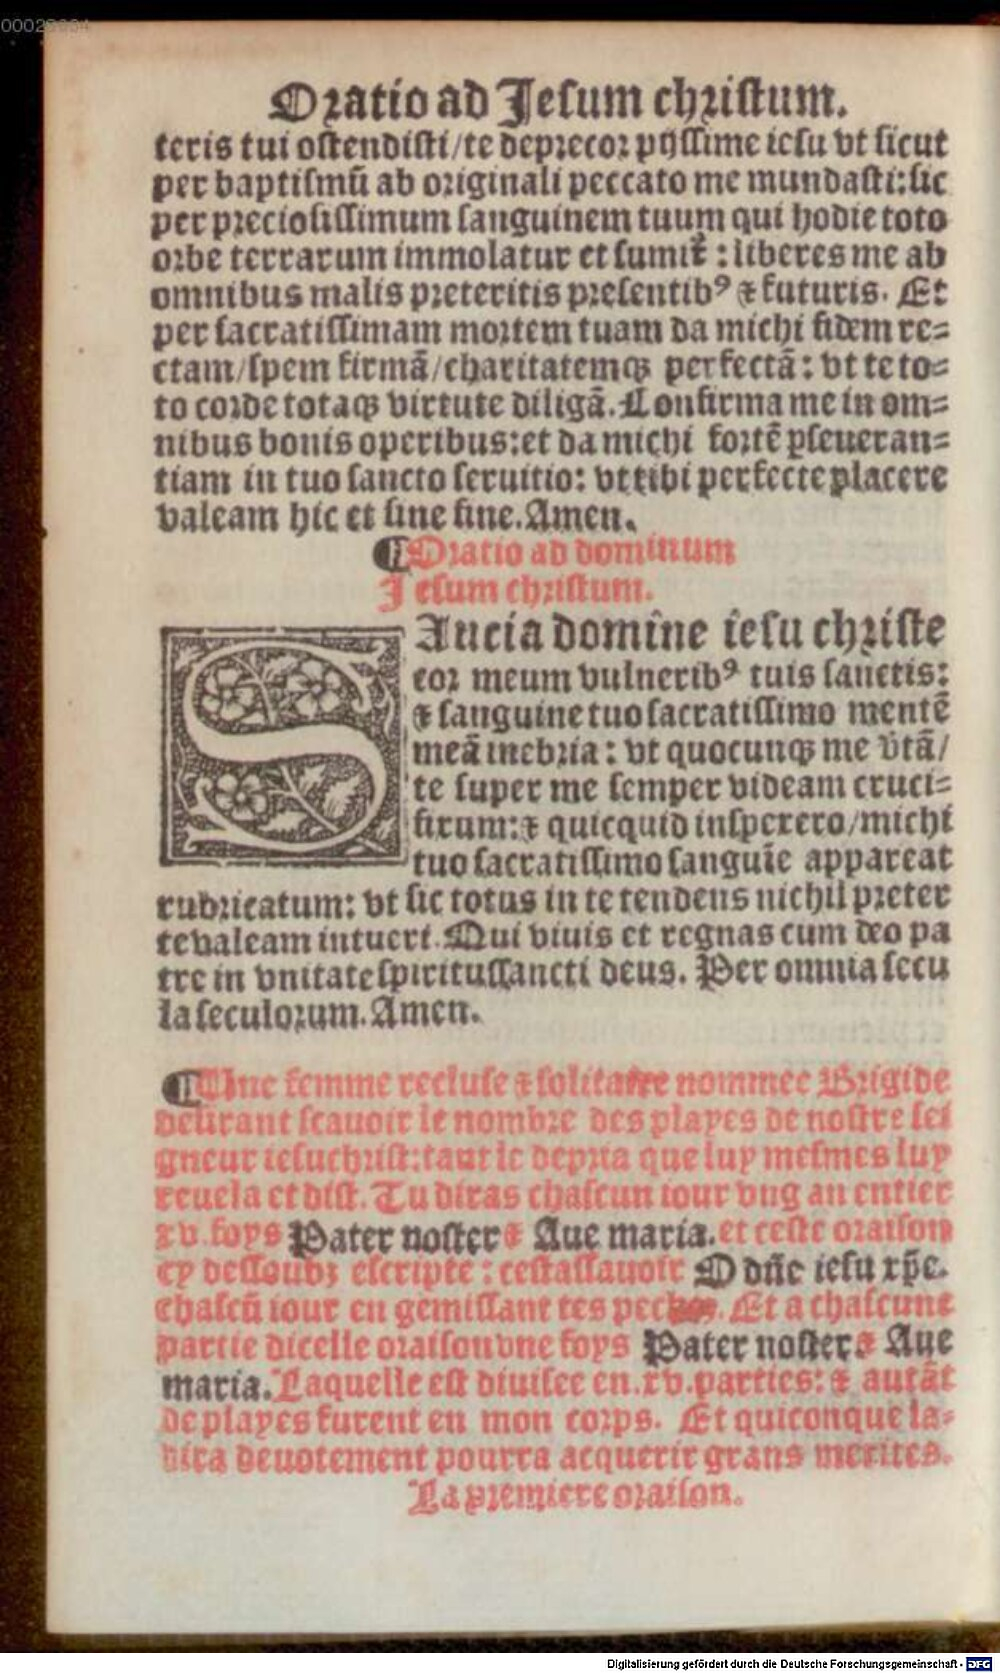 00023664
Oratio ad Jesum christum.
teris tui ostendisti/te deprecor pijssime iesu vt sicut
per baptismū ab originali peccato me mundasti:sic
per preciosissimum sanguinem tuum qui hodie toto
orbe terrarum immolatur et sumit᷑ : liberes me ab
omnibus malis preteritis presentibꝰ ⁊ futuris. Et
per sacratissimam mortem tuam da michi fidem re=
ctam/spem firmā/charitatemqꝫ perfectā: vt te to=
to corde totaqꝫ virtute diligā. Confirma me in om=
nibus bonis operibus:et da michi fortē ꝑseueran=
tiam in tuo sancto seruitio: vt tibi perfecte placere
valeam hic et sine fine. Amen.
¶ Oratio ad dominum
Jesum christum.
SAucia domine iesu christe
cor meum vulneribꝰ tuis sanctis:
⁊ sanguine tuo sacratissimo mentē
meā inebria: vt quocunqꝫ me v̓tā/
te super me semper videam cruci=
fixum:⁊ quicquid inspexero/michi
tuo sacratissimo sanguīe appareat
rubricatum: vt sic totus in te tendens nichil preter
te valeam intueri. Qui viuis et regnas cum deo pa
tre in vnitate spiritussancti deus. Per omnia secu
la seculorum. Amen.
¶ Une femme recluse ⁊ solitaire nommee Brigide
desirant scauoir le nombre des playes de nostre sei
gneur iesuchrist:tant le depria que luy mesmes luy
reuela et dist. Tu diras chascun iour vng an entier
xv. foys Pater noster ⁊ Aue maria. et ceste oraison
cy dessoubz escripte : cestassauoir O dn̄e iesu xp̄e.
chascū iour en gemissant tes pechez. Et a chascune
partie dicelle oraison vne foys Pater noster. ⁊ Aue
maria. Laquelle est diuisee en .xv. parties: ⁊ autāt
de playes furent en mon corps. Et quiconque la=
dira deuotement pourra acquerir grans merites.
La premiere oraison.
Digitalisierung gefördert durch die Deutsche Forschungsgemeinschaft - DFG